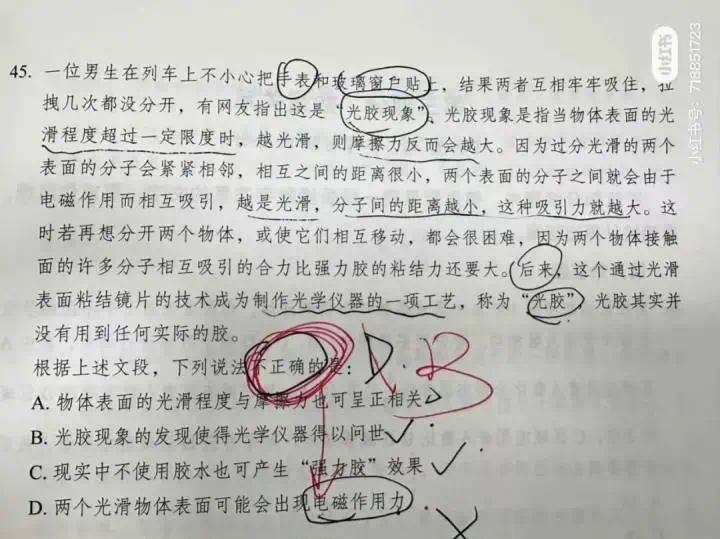 小红书
小红书号：718851723
45. 一位男生在列车上不小心把手表和玻璃窗户贴上，结果两者互相牢牢吸住，拉
拽几次都没分开，有网友指出这是“光胶现象”。光胶现象是指当物体表面的光
滑程度超过一定限度时，越光滑，则摩擦力反而会越大。因为过分光滑的两个
表面的分子会紧紧相邻，相互之间的距离很小，两个表面的分子之间就会由于
电磁作用而相互吸引，越是光滑，分子间的距离越小，这种吸引力就越大。这
时若再想分开两个物体，或使它们相互移动，都会很困难，因为两个物体接触
面的许多分子相互吸引的合力比强力胶的粘结力还要大。后来，这个通过光滑
表面粘结镜片的技术成为制作光学仪器的一项工艺，称为“光胶”，光胶其实并
没有用到任何实际的胶。
根据上述文段，下列说法不正确的是： D. B
A. 物体表面的光滑程度与摩擦力也可呈正相关
B. 光胶现象的发现使得光学仪器得以问世
C. 现实中不使用胶水也可产生“强力胶”效果
D. 两个光滑物体表面可能会出现电磁作用力